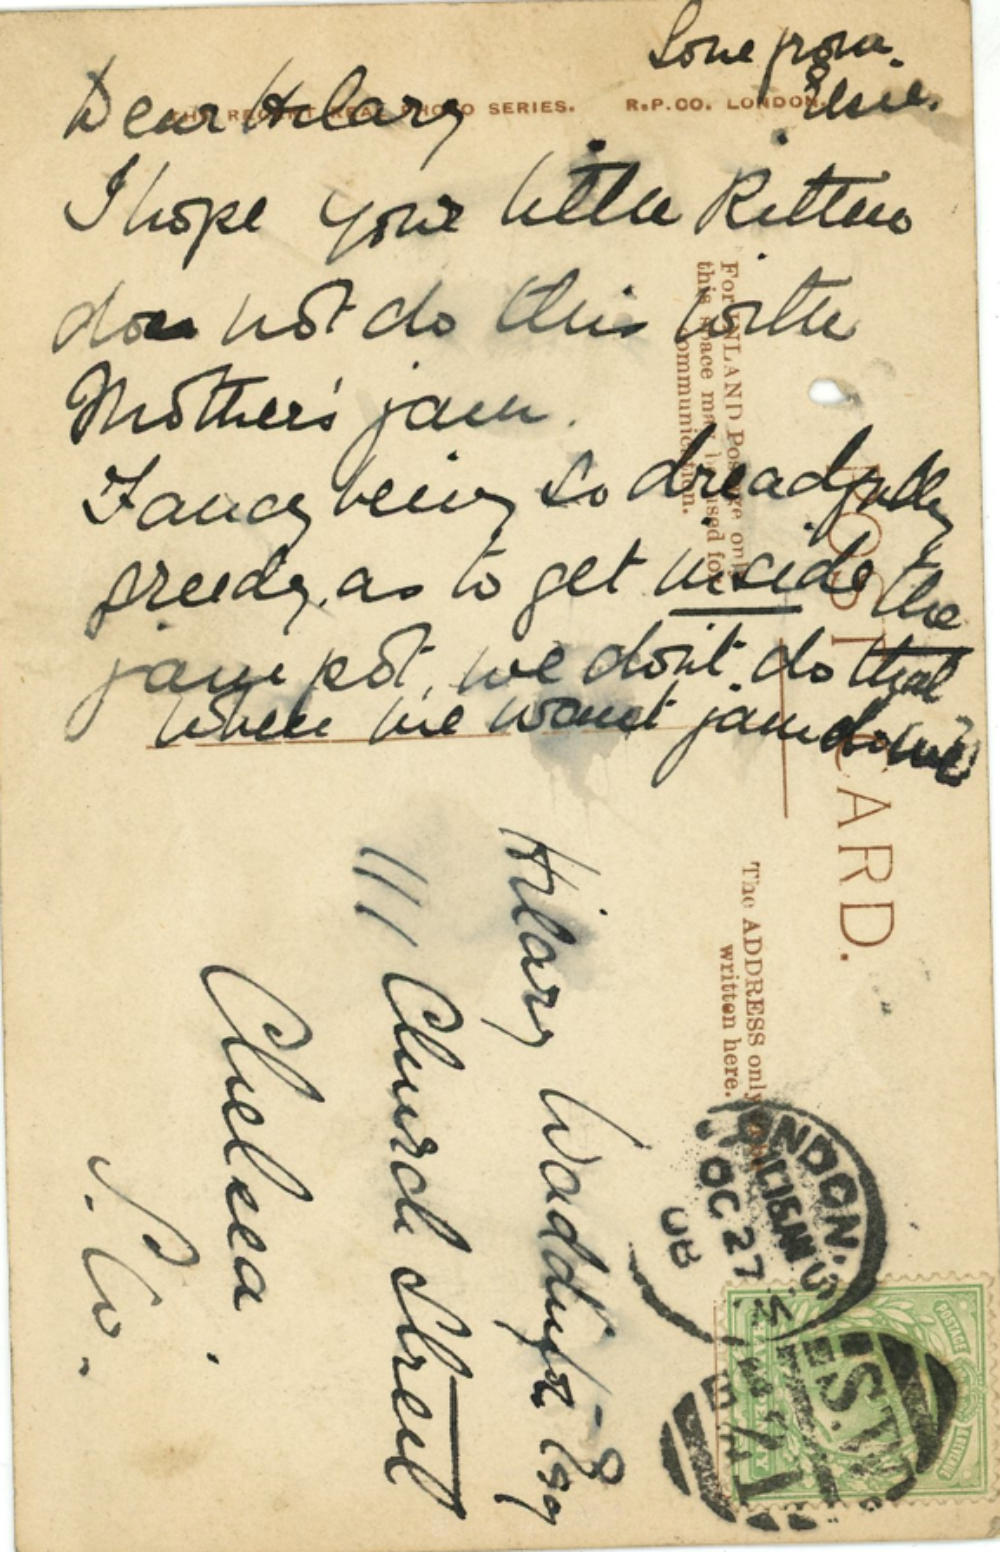 Love from
Elsie.
THE REGENT REAL PHOTO SERIES. R.P.CO. LONDON.
Dear Hilary
I hope your little Kitten
does not do this with
Mother's jam.
Fancy being so dreadfully
greedy, as to get inside the
jam pot, we don't do that
when we want jam do we?
For INLAND Postage only
this space may be used for
communication.
POST CARD.
The ADDRESS only
written here.
Hilary Esq
111 Church Street
Chelsea.
S.W.
LONDON. S.W.
11.15AM
OC 27
08
S.W.
POSTAGE